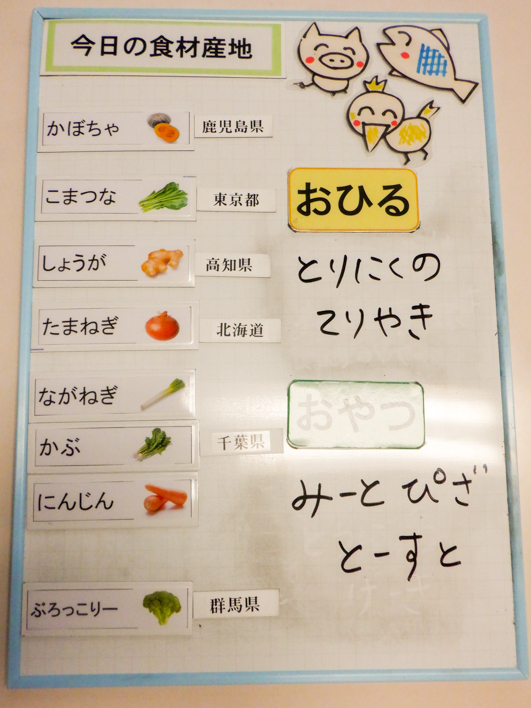 今日の食材産地
かぼちゃ 鹿児島県
こまつな 東京都
しょうが 高知県
たまねぎ 北海道
ながねぎ
かぶ 千葉県
にんじん
ぶろっこりー 群馬県
おひる
とりにくの
てりやき
おやつ
みーと ぴざ
とーすと